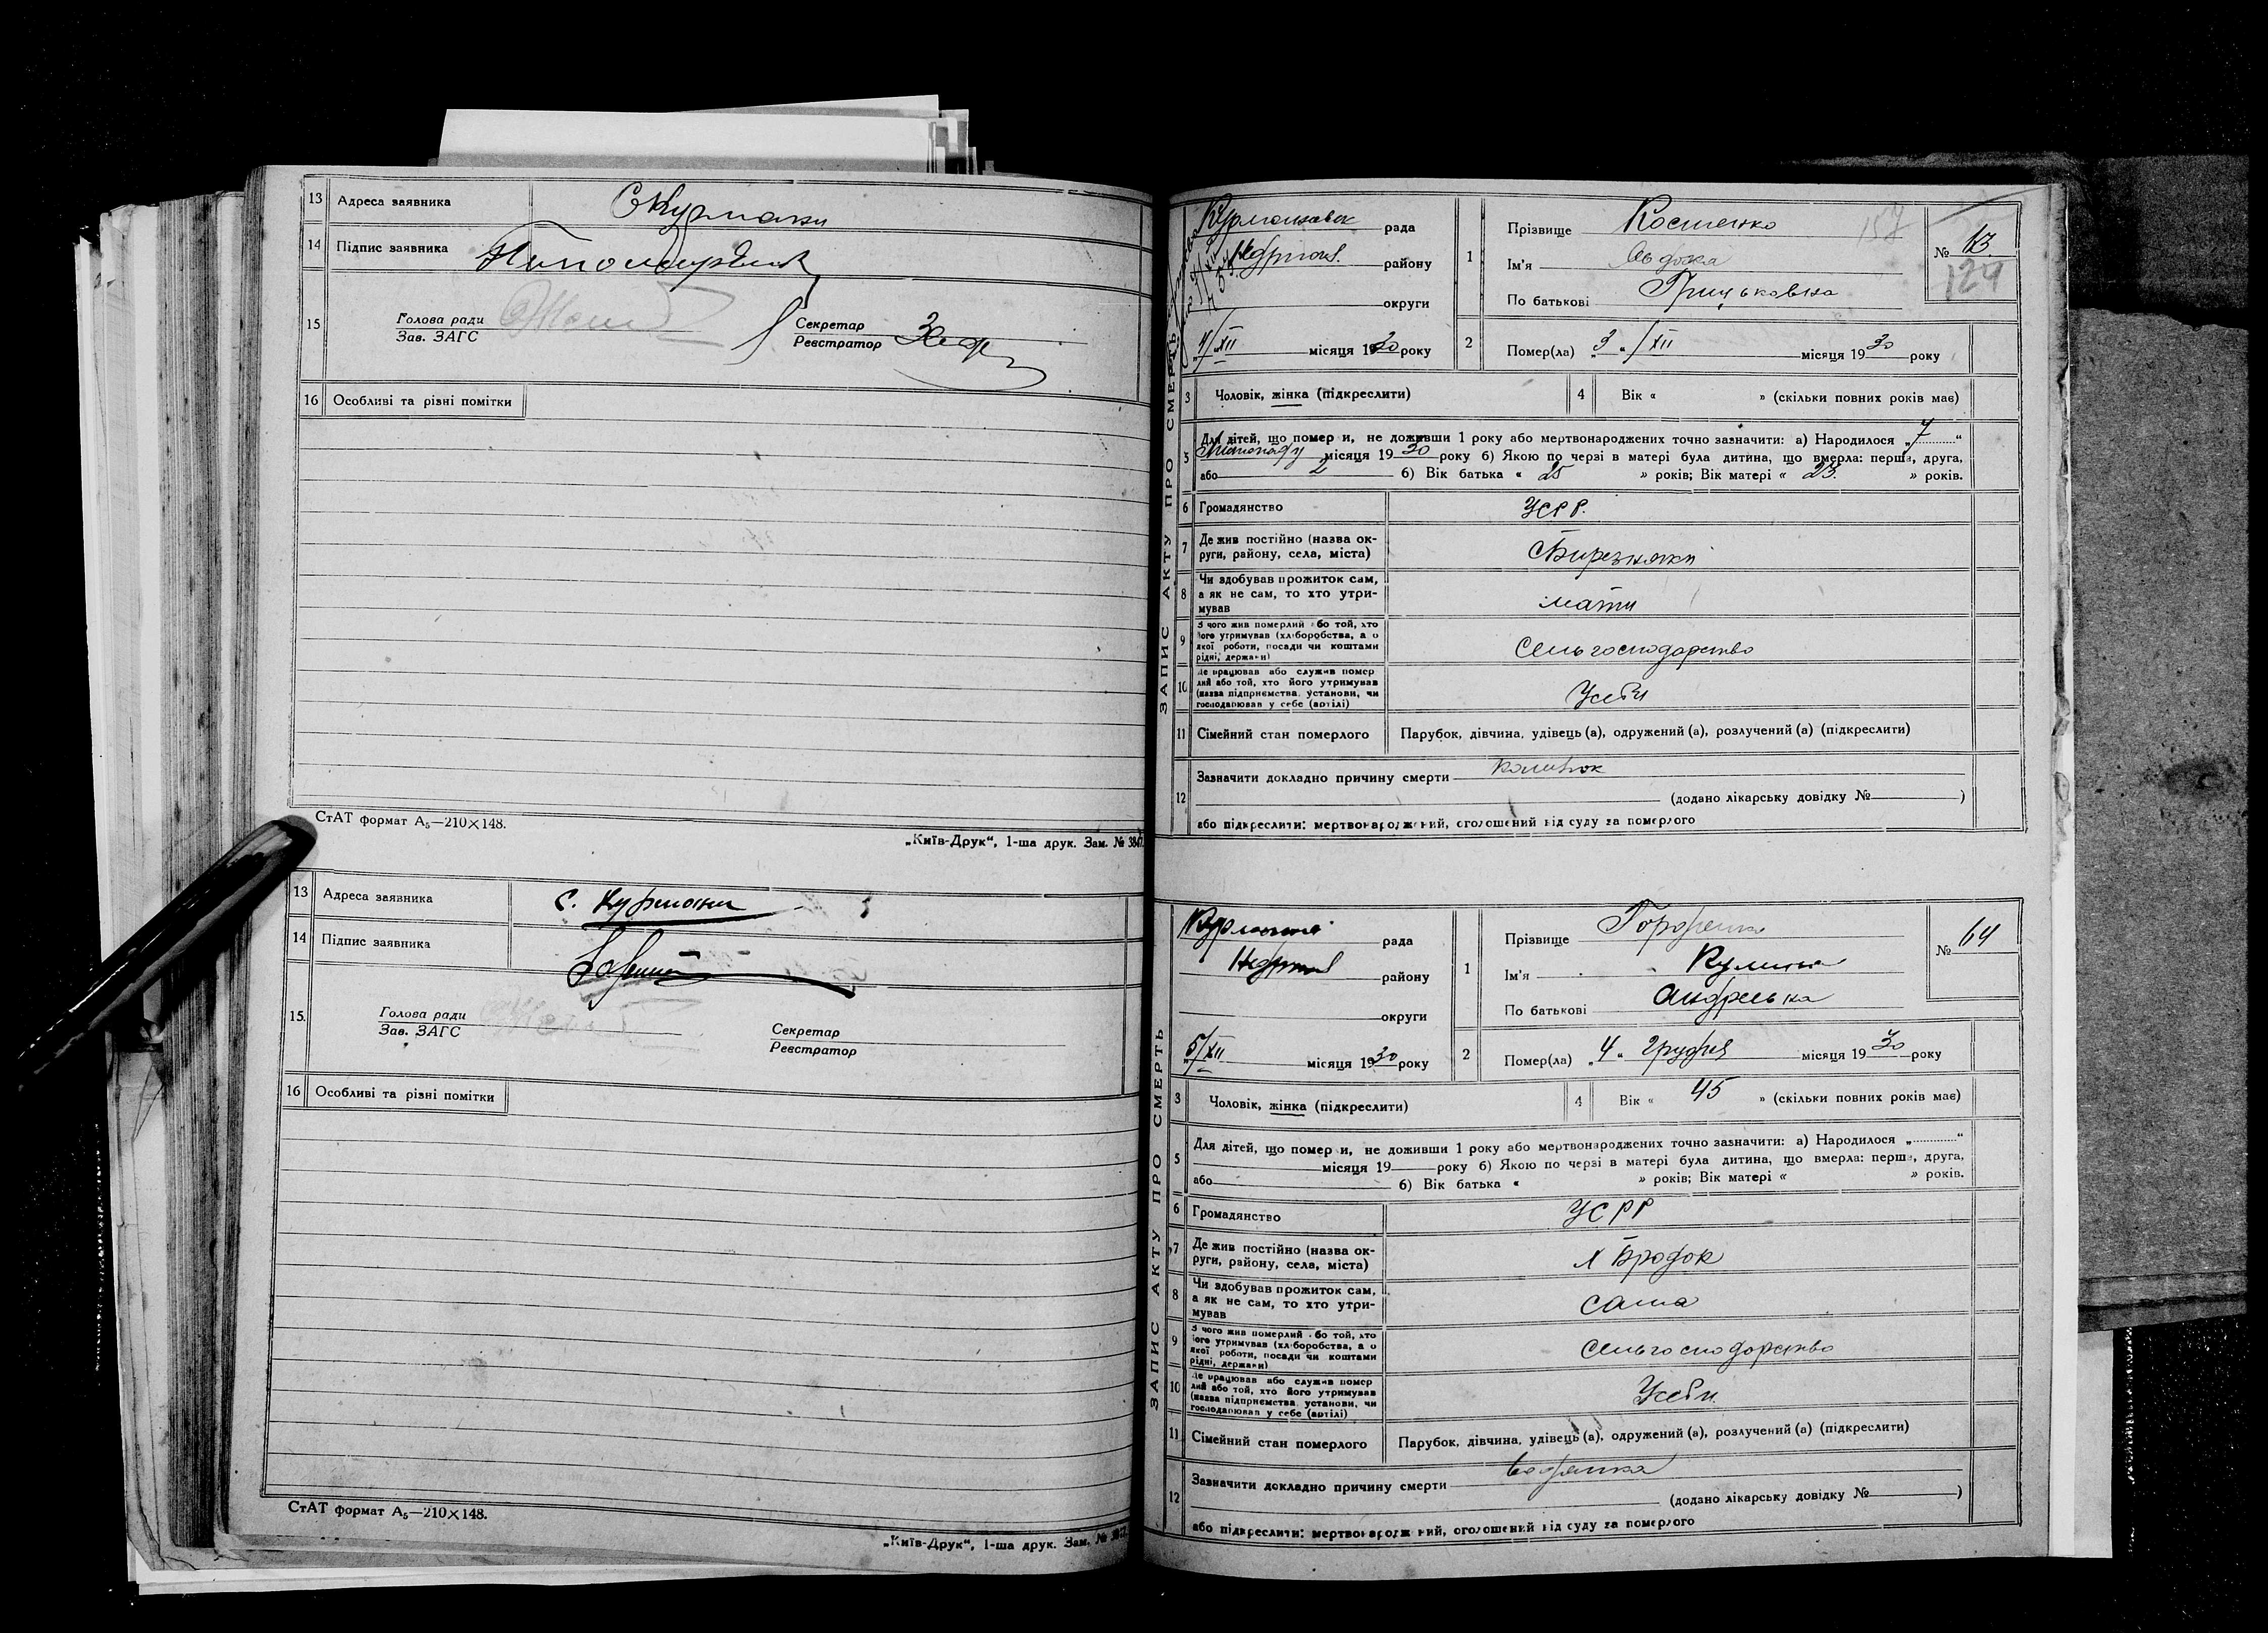 13 Адреса заявника С Курмани
14 Підпис заявника
15 Голова ради Секретар
Зав. ЗАГС Реєстратор
16 Особливі та різні помітки
СтАТ формат А₅—210×148.
„Київ-Друк“, 1-ша друк. Зам. № 3847.
13 Адреса заявника с. Курмани
14 Підпис заявника
15. Голова ради Секретар
Зав. ЗАГС Реєстратор
16 Особливі та різні помітки
СтАТ формат А₅—210×148.
„Київ-Друк“, 1-ша друк. Зам. №
ЗАПИС АКТУ ПРО СМЕРТЬ
рада
району
округи
4/XII місяця 1930 року
1 Прізвище Костенко 157
Ім'я Явдоха
По батькові Грицьковна
№ 63.
124
2 Помер(ла) „3“ /XII місяця 1930 року
3 Чоловік, жінка (підкреслити)
4 Вік « » (скільки повних років має)
5 Для дітей, що помер и, не доживши 1 року або мертвонароджених точно зазначити: а) Народилося „7“
Листопаду місяця 1930 року б) Якою по черзі в матері була дитина, що вмерла: перша, друга,
або 2 б) Вік батька « 25 » років; Вік матері « 23. » років.
6 Громадянство УСРР.
7 Де жив постійно (назва округи, району, села, міста) с Бирезняки
8 Чи здобував прожиток сам, а як не сам, то хто утримував мати
9 З чого жив померлий або той, хто його утримував (хліборобства, а о якої роботи, посади чи коштами рідні, держави) Сельгосподарство
10 Де працював або служив помер лий або той, хто його утримував (назва підприємства, установи, чи господарював у себе (артілі) Усеби
11 Сімейний стан померлого Парубок, дівчина, удівець (а), одружений (а), розлучений (а) (підкреслити)
12 Зазначити докладно причину смерти
(додано лікарську довідку № )
або підкреслити: мертвонароджений, оголошений від суду за померлого
ЗАПИС АКТУ ПРО СМЕРТЬ
рада
району
округи
5/XII місяця 1930 року
1 Прізвище Городенко
Ім'я Кулина
По батькові Андревка
№ 64
2 Помер(ла) „4“ грудня місяця 1930 року
3 Чоловік, жінка (підкреслити)
4 Вік « 45 » (скільки повних років має)
5 Для дітей, що помер и, не доживши 1 року або мертвонароджених точно зазначити: а) Народилося „ “
місяця 19 року б) Якою по черзі в матері була дитина, що вмерла: перша, друга,
або б) Вік батька « » років; Вік матері « » років.
6 Громадянство УСРР
7 Де жив постійно (назва округи, району, села, міста) х Бродок
8 Чи здобував прожиток сам, а як не сам, то хто утримував сама
9 З чого жив померлий або той, хто його утримував (хліборобства, а о якої роботи, посади чи коштами рідні, держави) сельгосподарство
10 Де працював або служив помер лий або той, хто його утримував (назва підприємства, установи, чи господарював у себе (артілі) Усеби
11 Сімейний стан померлого Парубок, дівчина, удівець (а), одружений (а), розлучений (а) (підкреслити)
12 Зазначити докладно причину смерти водянка
(додано лікарську довідку № )
або підкреслити: мертвонароджений, оголошений від суду за померлого